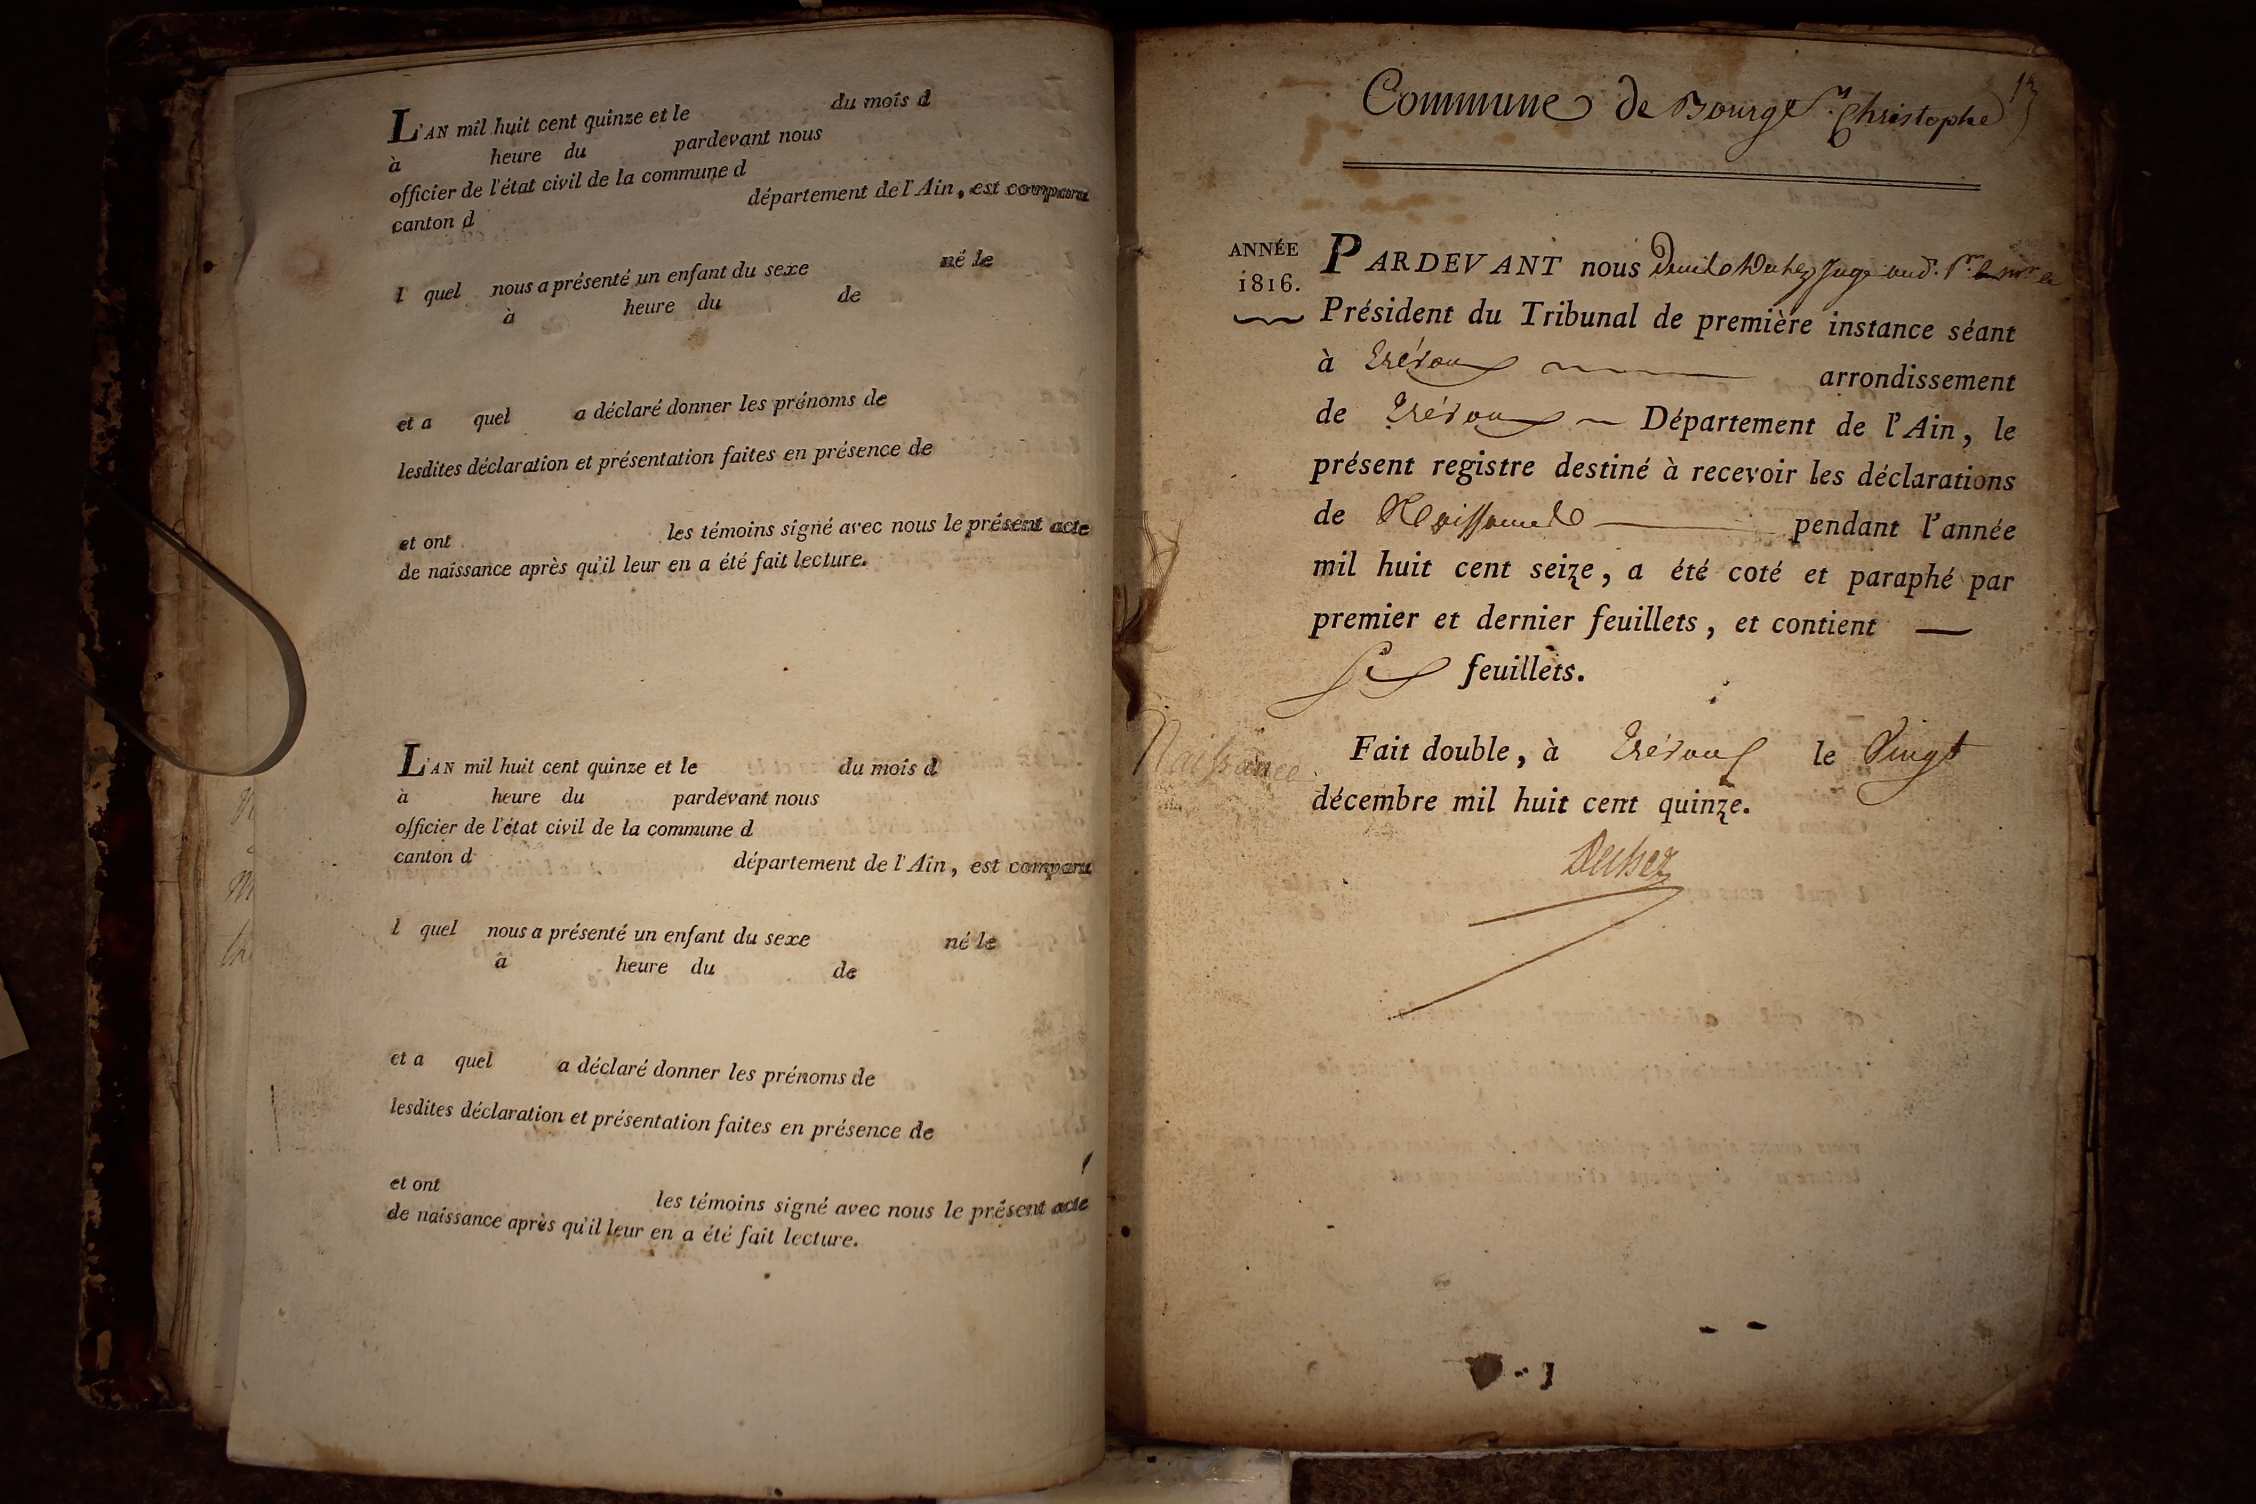 L'AN mil huit cent quinze et le du mois d
à heure du pardevant nous
officier de l'état civil de la commune d
canton d département de l'Ain, est comparu
l quel nous a présenté un enfant du sexe né le
à heure du de
et a quel a déclaré donner les prénoms de
lesdites déclaration et présentation faites en présence de
et ont les témoins signé avec nous le présent acte
de naissance après qu'il leur en a été fait lecture.
L'AN mil huit cent quinze et le du mois d
à heure du pardevant nous
officier de l'état civil de la commune d
canton d département de l'Ain, est comparu
l quel nous a présenté un enfant du sexe né le
à heure du de
et a quel a déclaré donner les prénoms de
lesdites déclaration et présentation faites en présence de
et ont les témoins signé avec nous le présent acte
de naissance après qu'il leur en a été fait lecture.
Commune de Bourg St. Christophe
ANNÉE
1816.
PARDEVANT nous Juge
Président du Tribunal de première instance séant
à Trévoux arrondissement
de Trévoux Département de l'Ain, le
présent registre destiné à recevoir les déclarations
de Naissance pendant l'année
mil huit cent seize, a été coté et paraphé par
premier et dernier feuillets, et contient
Six feuillets.
Naissance
Fait double, à Trévoux le Vingt
décembre mil huit cent quinze.